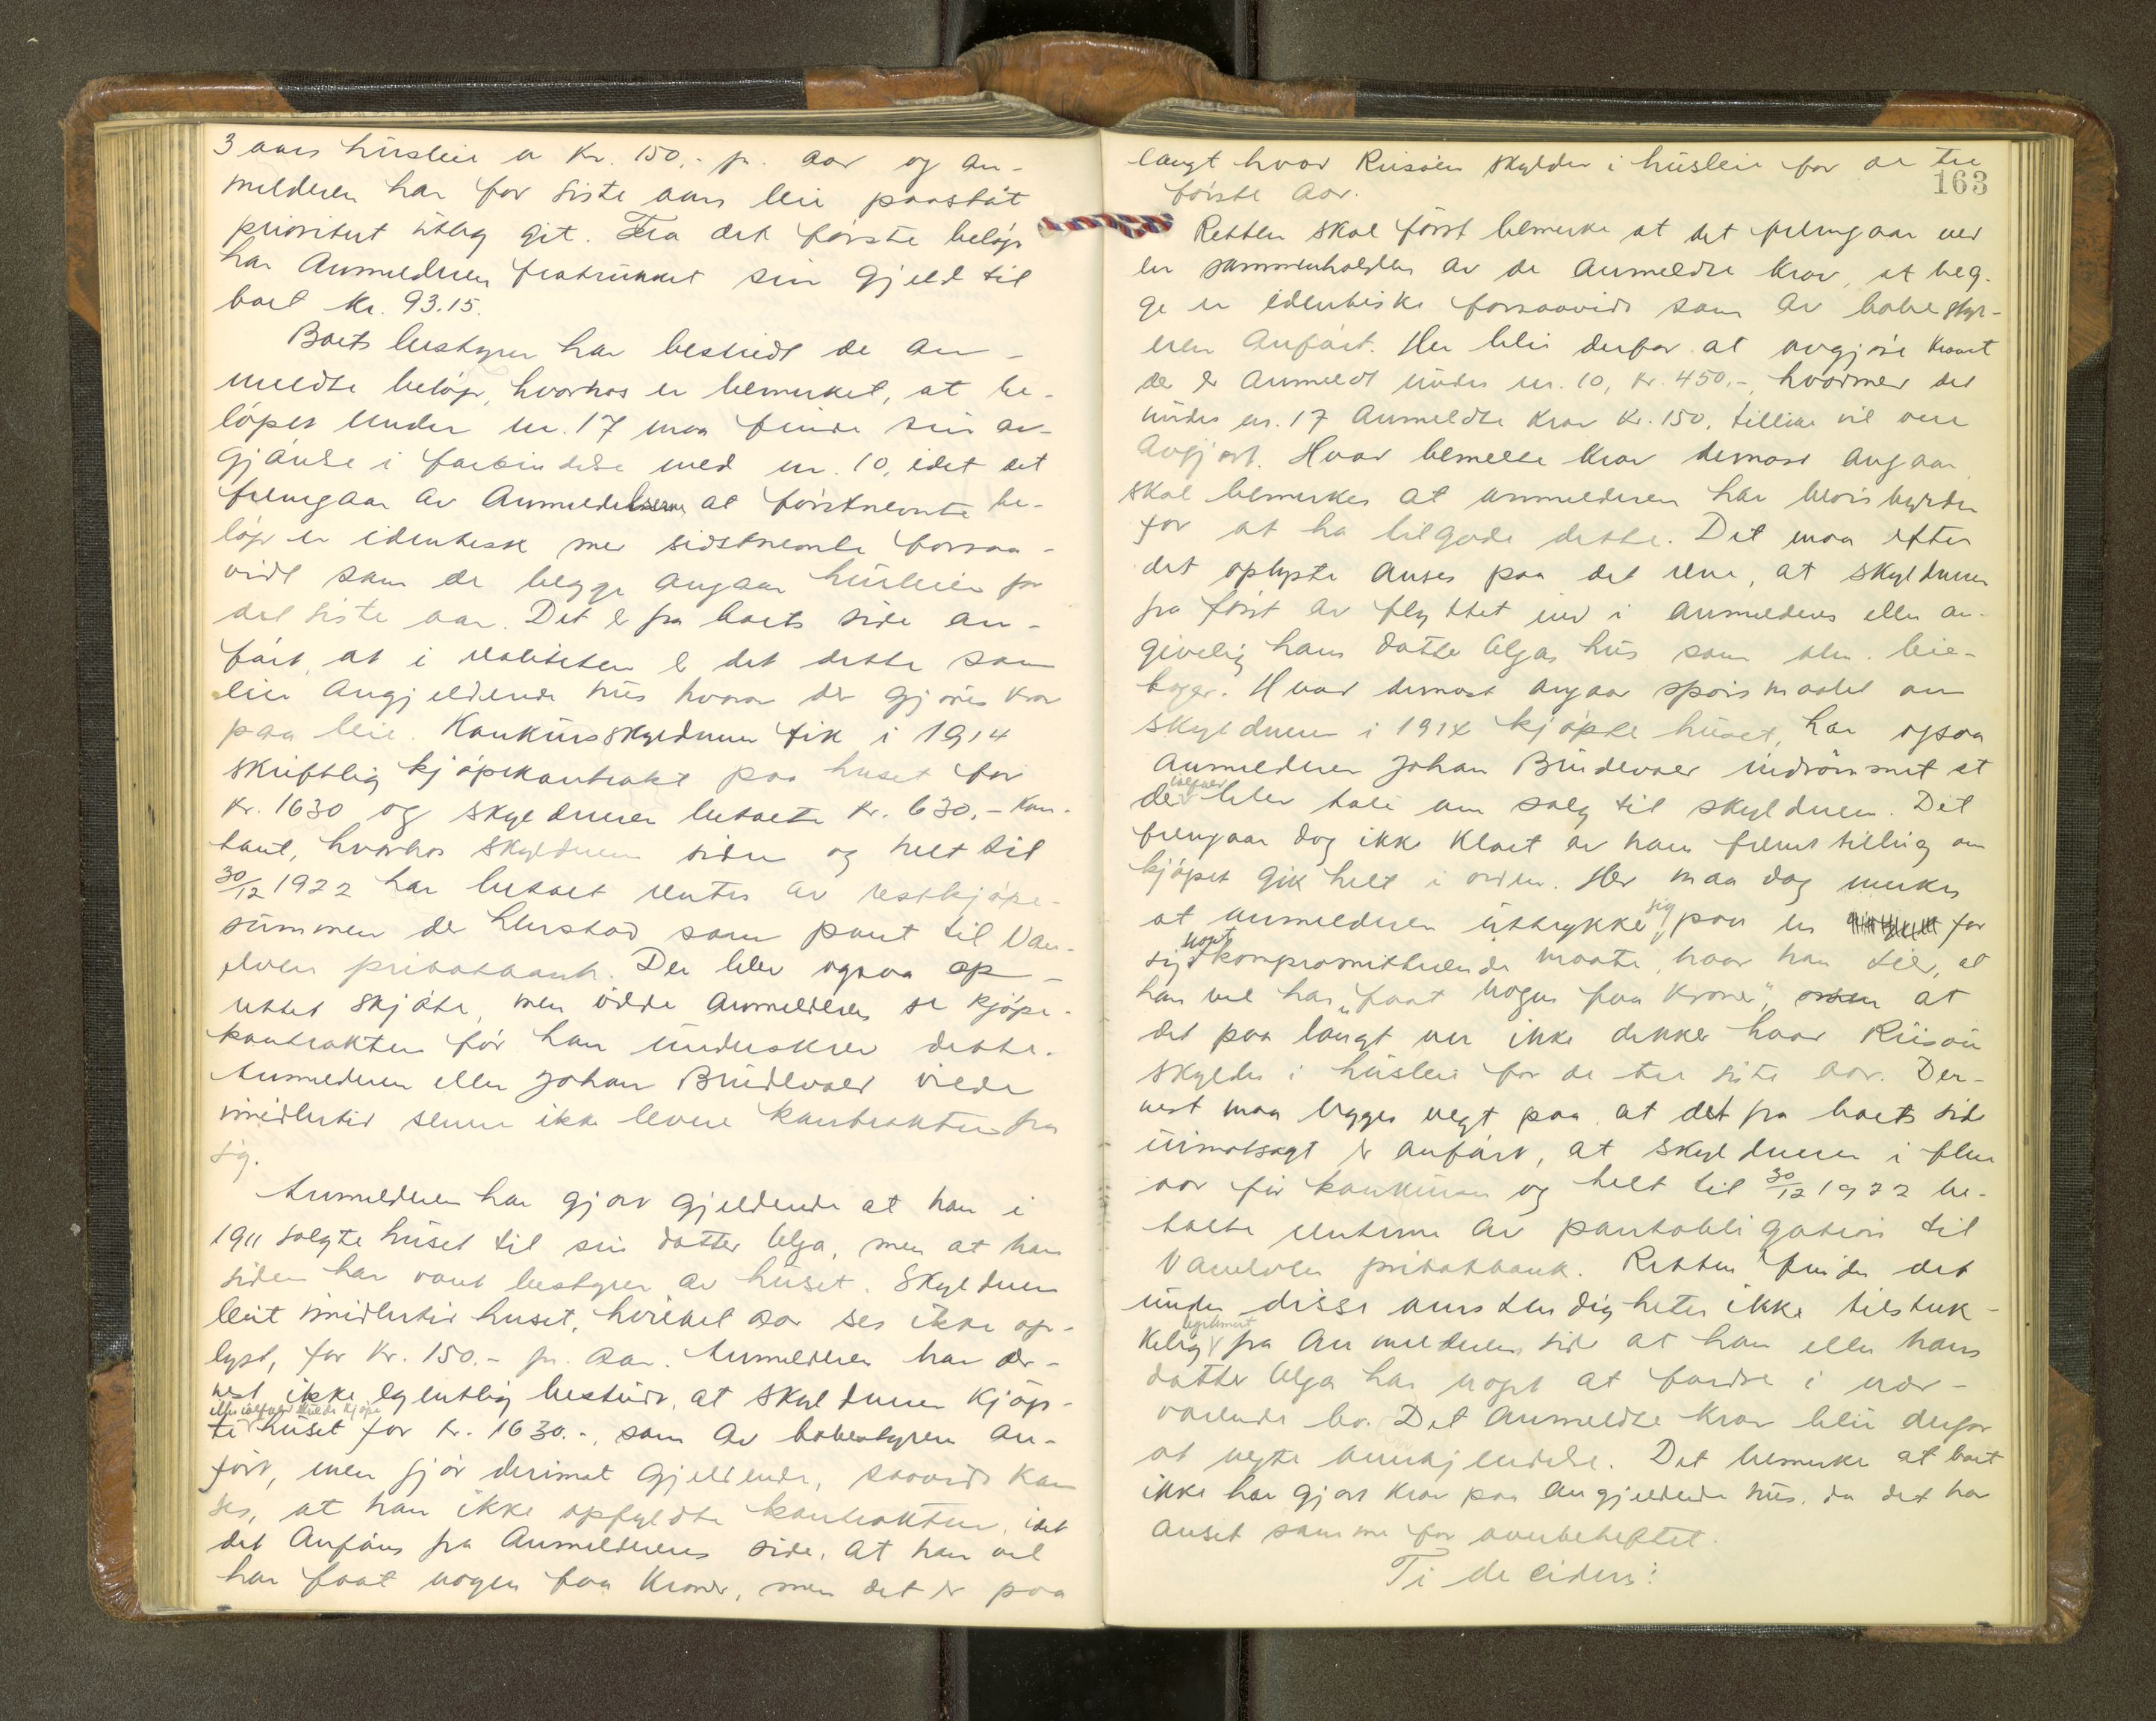 3 aars husleie a Kr. 150,- pr. aar og an-
melderen har for siste aars leie paastaat
prioritert utlæg git. Fra det første beløp
har Anmelderen fratrukket sin gjæld til
boet Kr. 93.15.
Boets bestyrer har bestridt de an-
meldte beløp, hvorhos er bemerket, at be-
løpet under nr. 17 maa finde sin av-
gjørelse i forbindelse med nr. 10, idet det
fremgaar av Anmeldelserne at førstnevnte be-
løp er identisk med sidstnevnte forsaa-
vidt som de begge angaar husleien for
det siste aar. Det er fra boets side an-
ført, at i realiteten er det dette som
eier angjeldende hus hvorav der gjøres krav
paa leie. Konkursskyldneren fik i 1914
skriftlig kjøpekontrakt paa huset for
Kr. 1630 og skyldneren betalte Kr. 630,- kon-
tant, hvorhos skyldneren siden og helt til
30/12 1922 har betalt renter av restkjøpe-
summen der henstod som pant til Van-
elven privatbank. Der blev ogsaa op-
rettet skjøte, men vilde Anmelderen se kjøpe-
kontrakten før han underskrev dette.
Anmelderen eller Johan Brudevoll vilde
imidlertid senere ikke levere kontrakten fra
sig.
Anmelderen har gjort gjeldende at han i
1911 solgte huset til sin datter Olga, men at han
siden har vært bestyrer av huset. Skyldneren
leiet imidlertid huset, hvilket aar sees ikke op-
lyst, for Kr. 150.- pr. aar. Anmelderen har der-
nest ikke egentlig bestridt, at skyldneren kjøp-
eller ialfald skulde kjøpe
te huset for Kr. 1630.-, som av bobestyreren an-
ført, men gjør derimot gjeldende, saavidt kan
ses, at han ikke opfyldte kontrakten, idet
det anføres fra Anmelderens side, at han vel
har faat nogen faa Kroner, men det er paa
163
langt hvad Riisøen skylder i husleie for de tre
første aar.
Retten skal først bemerke at det fremgaar ved
en sammenholden av de anmeldte krav, at beg-
ge er identiske forsaavidt som av bobestyr-
eren anført. Her blir derfor at avgjøre kravet
der er anmeldt under nr. 10, Kr. 450,-, hvormed det
under nr. 17 anmeldte krav Kr. 150, tillike vil være
avgjort. Hvad bemeldte krav dernæst angaar
skal bemerkes at anmelderen har bevisbyrden
for at ha tilgode dette. Det maa efter
det oplyste anses paa det rene, at skyldneren
fra først av flyttet ind i anmelderens eller an-
givelig hans datter Olgas hus som alm. leie-
boger. Hvad dernæst angaar spørsmaalet om
skyldneren i 1914 kjøpte huset, har ogsaa
Anmelderen Johan Brudevoll indrømmet at
ialfald
der blev tale om salg til skyldneren. Det
fremgaar dog ikke klart av hans fremstilling om
kjøpet gik helt i orden. Her maa dog merkes
at anmelderen uttrykker sig paa en for
sig noget kompromitterende maate, hvor han sier, at
han vel har "faat nogen faa kroner", at
det paa langt nær ikke dekker hvad Riisøen
skylder i husleie for de tre siste aar. Der-
nest maa lægges vegt paa, at det fra boets side
uimotsagt er anført, at skyldneren i flere
aar før konkursen og helt til 30/12 1922 be-
talte renterne av pantobligation til
Vanelven privatbank. Retten finder det
under disse omstendigheter ikke tilstræk-
legitimert
kelig fra Anmelderens side at han eller hans
datter Olga har noget at fordre i nær-
værende bo. Det anmeldte krav blir derfor
at negte anerkjendelse. Det bemerkes at boet
ikke har gjort krav paa angjeldende hus, da det har
anset samme for overbeheftet.
Ti decideres: